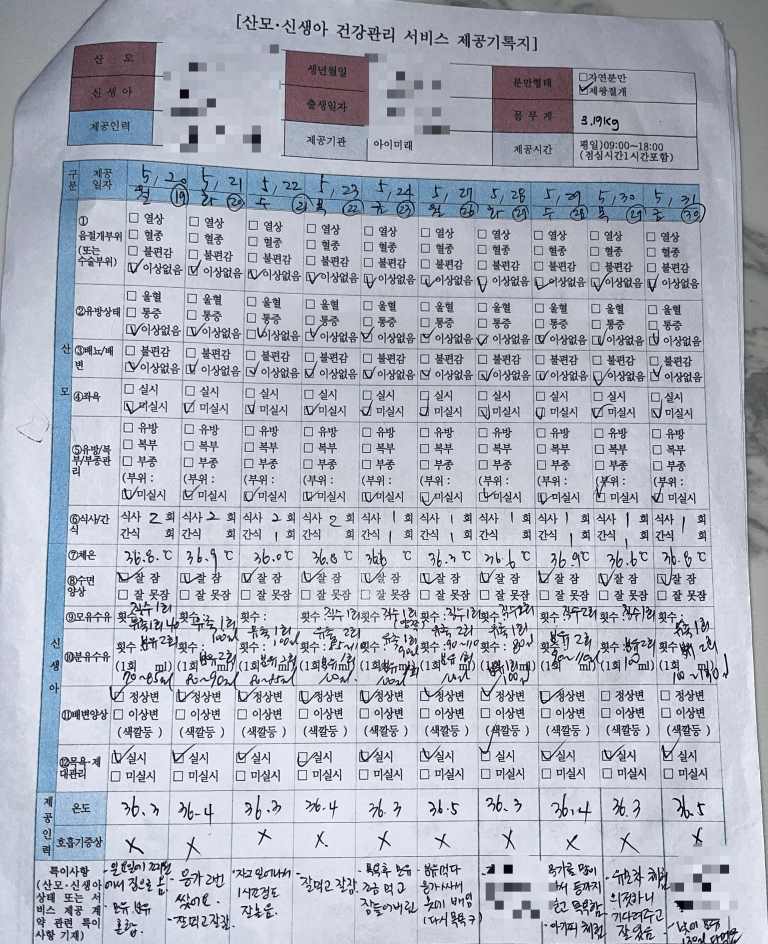 [산모·신생아 건강관리 서비스 제공기록지]
산 모 생년월일 분만형태 □자연분만 ☑제왕절개
신생아 출생일자 몸무게 3.19kg
제공인력 제공기관 아이미래 제공시간 평일)09:00~18:00 (점심시간1시간포함)
구분 제공일자 5, 20 월 ⑲ 5, 21 화 ⑳ 5, 22 수 ㉑ 5, 23 목 ㉒ 5, 24 금 ㉓ 5, 27 월 ㉖ 5, 28 화 ㉗ 5, 29 수 ㉘ 5, 30 목 ㉙ 5, 31 금 ㉚
산 모
① 음절개부위 (또는 수술부위)
□ 열상 □ 열상 □ 열상 □ 열상 □ 열상 □ 열상 □ 열상 □ 열상 □ 열상 □ 열상
□ 혈종 □ 혈종 □ 혈종 □ 혈종 □ 혈종 □ 혈종 □ 혈종 □ 혈종 □ 혈종 □ 혈종
□ 불편감 □ 불편감 □ 불편감 □ 불편감 □ 불편감 □ 불편감 □ 불편감 □ 불편감 □ 불편감 □ 불편감
☑ 이상없음 ☑ 이상없음 ☑ 이상없음 ☑ 이상없음 ☑ 이상없음 ☑ 이상없음 ☑ 이상없음 ☑ 이상없음 ☑ 이상없음 ☑ 이상없음
②유방상태
□ 울혈 □ 울혈 □ 울혈 □ 울혈 □ 울혈 □ 울혈 □ 울혈 □ 울혈 □ 울혈 □ 울혈
□ 통증 □ 통증 □ 통증 □ 통증 □ 통증 □ 통증 □ 통증 □ 통증 □ 통증 □ 통증
☑ 이상없음 ☑ 이상없음 ☑ 이상없음 ☑ 이상없음 ☑ 이상없음 ☑ 이상없음 ☑ 이상없음 ☑ 이상없음 ☑ 이상없음 ☑ 이상없음
③배뇨/배변
□ 불편감 □ 불편감 □ 불편감 □ 불편감 □ 불편감 □ 불편감 □ 불편감 □ 불편감 □ 불편감 □ 불편감
☑ 이상없음 ☑ 이상없음 ☑ 이상없음 ☑ 이상없음 ☑ 이상없음 ☑ 이상없음 ☑ 이상없음 ☑ 이상없음 ☑ 이상없음 ☑ 이상없음
④좌욕
□ 실시 □ 실시 □ 실시 □ 실시 □ 실시 □ 실시 □ 실시 □ 실시 □ 실시 □ 실시
☑ 미실시 ☑ 미실시 ☑ 미실시 ☑ 미실시 ☑ 미실시 ☑ 미실시 ☑ 미실시 ☑ 미실시 ☑ 미실시 ☑ 미실시
⑤유방/복부/부종관리
□ 유방 □ 유방 □ 유방 □ 유방 □ 유방 □ 유방 □ 유방 □ 유방 □ 유방 □ 유방
□ 복부 □ 복부 □ 복부 □ 복부 □ 복부 □ 복부 □ 복부 □ 복부 □ 복부 □ 복부
□ 부종 □ 부종 □ 부종 □ 부종 □ 부종 □ 부종 □ 부종 □ 부종 □ 부종 □ 부종
(부위 : (부위 : (부위 : (부위 : (부위 : (부위 : (부위 : (부위 : (부위 : (부위 :
☑ 미실시 ☑ 미실시 ☑ 미실시 ☑ 미실시 ☑ 미실시 ☑ 미실시 ☑ 미실시 ☑ 미실시 ☑ 미실시 ☑ 미실시
⑥식사/간식
식사 2 회 식사 2 회 식사 2 회 식사 2 회 식사 1 회 식사 1 회 식사 1 회 식사 1 회 식사 1 회 식사 1 회
간식 회 간식 회 간식 1 회 간식 회 간식 1 회 간식 1 회 간식 1 회 간식 1 회 간식 1 회 간식 1 회
신 생 아
⑦체온 36.8℃ 36.9℃ 36.0℃ 36.8℃ ℃ ℃ 36.6℃ 36.9℃ 36.6℃ 36.8℃
⑧수면양상
☑ 잘 잠 ☑ 잘 잠 ☑ 잘 잠 ☑ 잘 잠 ☑ 잘 잠 ☑ 잘 잠 ☑ 잘 잠 ☑ 잘 잠 ☑ 잘 잠 ☑ 잘 잠
□ 잘 못잠 □ 잘 못잠 □ 잘 못잠 □ 잘 못잠 □ 잘 못잠 □ 잘 못잠 □ 잘 못잠 □ 잘 못잠 □ 잘 못잠 □ 잘 못잠
⑨모유수유 횟수: 직수 1회 유축 1회 횟수: 유축 1회 100ml 횟수: 유축 1회 횟수: 직수 1회 유축 2회 횟수: 직수 1회 유축 1회 횟수: 직수 1회 유축 2회 횟수: 직수 2회 유축 1회 횟수: 직수 2회 횟수: 직수 1회 횟수: 유축 1회
⑩분유수유 횟수: 분유 2회 (1회 ml) 70~85ml 횟수: 분유 2회 (1회 ml) 80~90ml 횟수: 분유 2회 (1회 ml) 횟수: 분유 1회 (1회 ml) 횟수: (1회 ml) 횟수: 분유 1회 (1회 ml) 횟수: (1회 ml) 100ml 횟수: 분유 2회 (1회 ml) 횟수: 분유 2회 (1회 ml) 100 횟수: 2회 (1회 ml)
⑪배변양상
☑ 정상변 ☑ 정상변 ☑ 정상변 ☑ 정상변 ☑ 정상변 ☑ 정상변 ☑ 정상변 ☑ 정상변 ☑ 정상변 ☑ 정상변
□ 이상변 □ 이상변 □ 이상변 □ 이상변 □ 이상변 □ 이상변 □ 이상변 □ 이상변 □ 이상변 □ 이상변
(색깔등 ) (색깔등 ) (색깔등 ) (색깔등 ) (색깔등 ) (색깔등 ) (색깔등 ) (색깔등 ) (색깔등 ) (색깔등 )
⑫목욕·제대관리
☑ 실시 ☑ 실시 ☑ 실시 ☑ 실시 ☑ 실시 ☑ 실시 ☑ 실시 ☑ 실시 ☑ 실시 ☑ 실시
□ 미실시 □ 미실시 □ 미실시 □ 미실시 □ 미실시 □ 미실시 □ 미실시 □ 미실시 □ 미실시 □ 미실시
제공인력
온도 36.3 36.4 36.3 36.4 36.3 36.5 36.3 36.4 36.3 36.5
호흡기증상 X X X X X X X X X X
특이사항 (산모·신생아 상태 또는 서비스 제공 계약 관련 특이사항 기재)
- 에서 집으로 옴 - 모유 분유 혼합
- 응가 2번 쌌어요. - 잘먹고 잘잠
- 자고 일어나서 1시간정도 잘놀음
- 잘먹고 잘잠
- 목욕후 모유 조금 먹고 잠들어버린
- 분유먹다 응가 싸서 (다시 목욕 ㅋ)
응가를 많이 해서 등까지 하고 목욕함 - 아기띠 체험
- 수유착 체험 의젓하니 기다려주고 잘있음
- 낮에